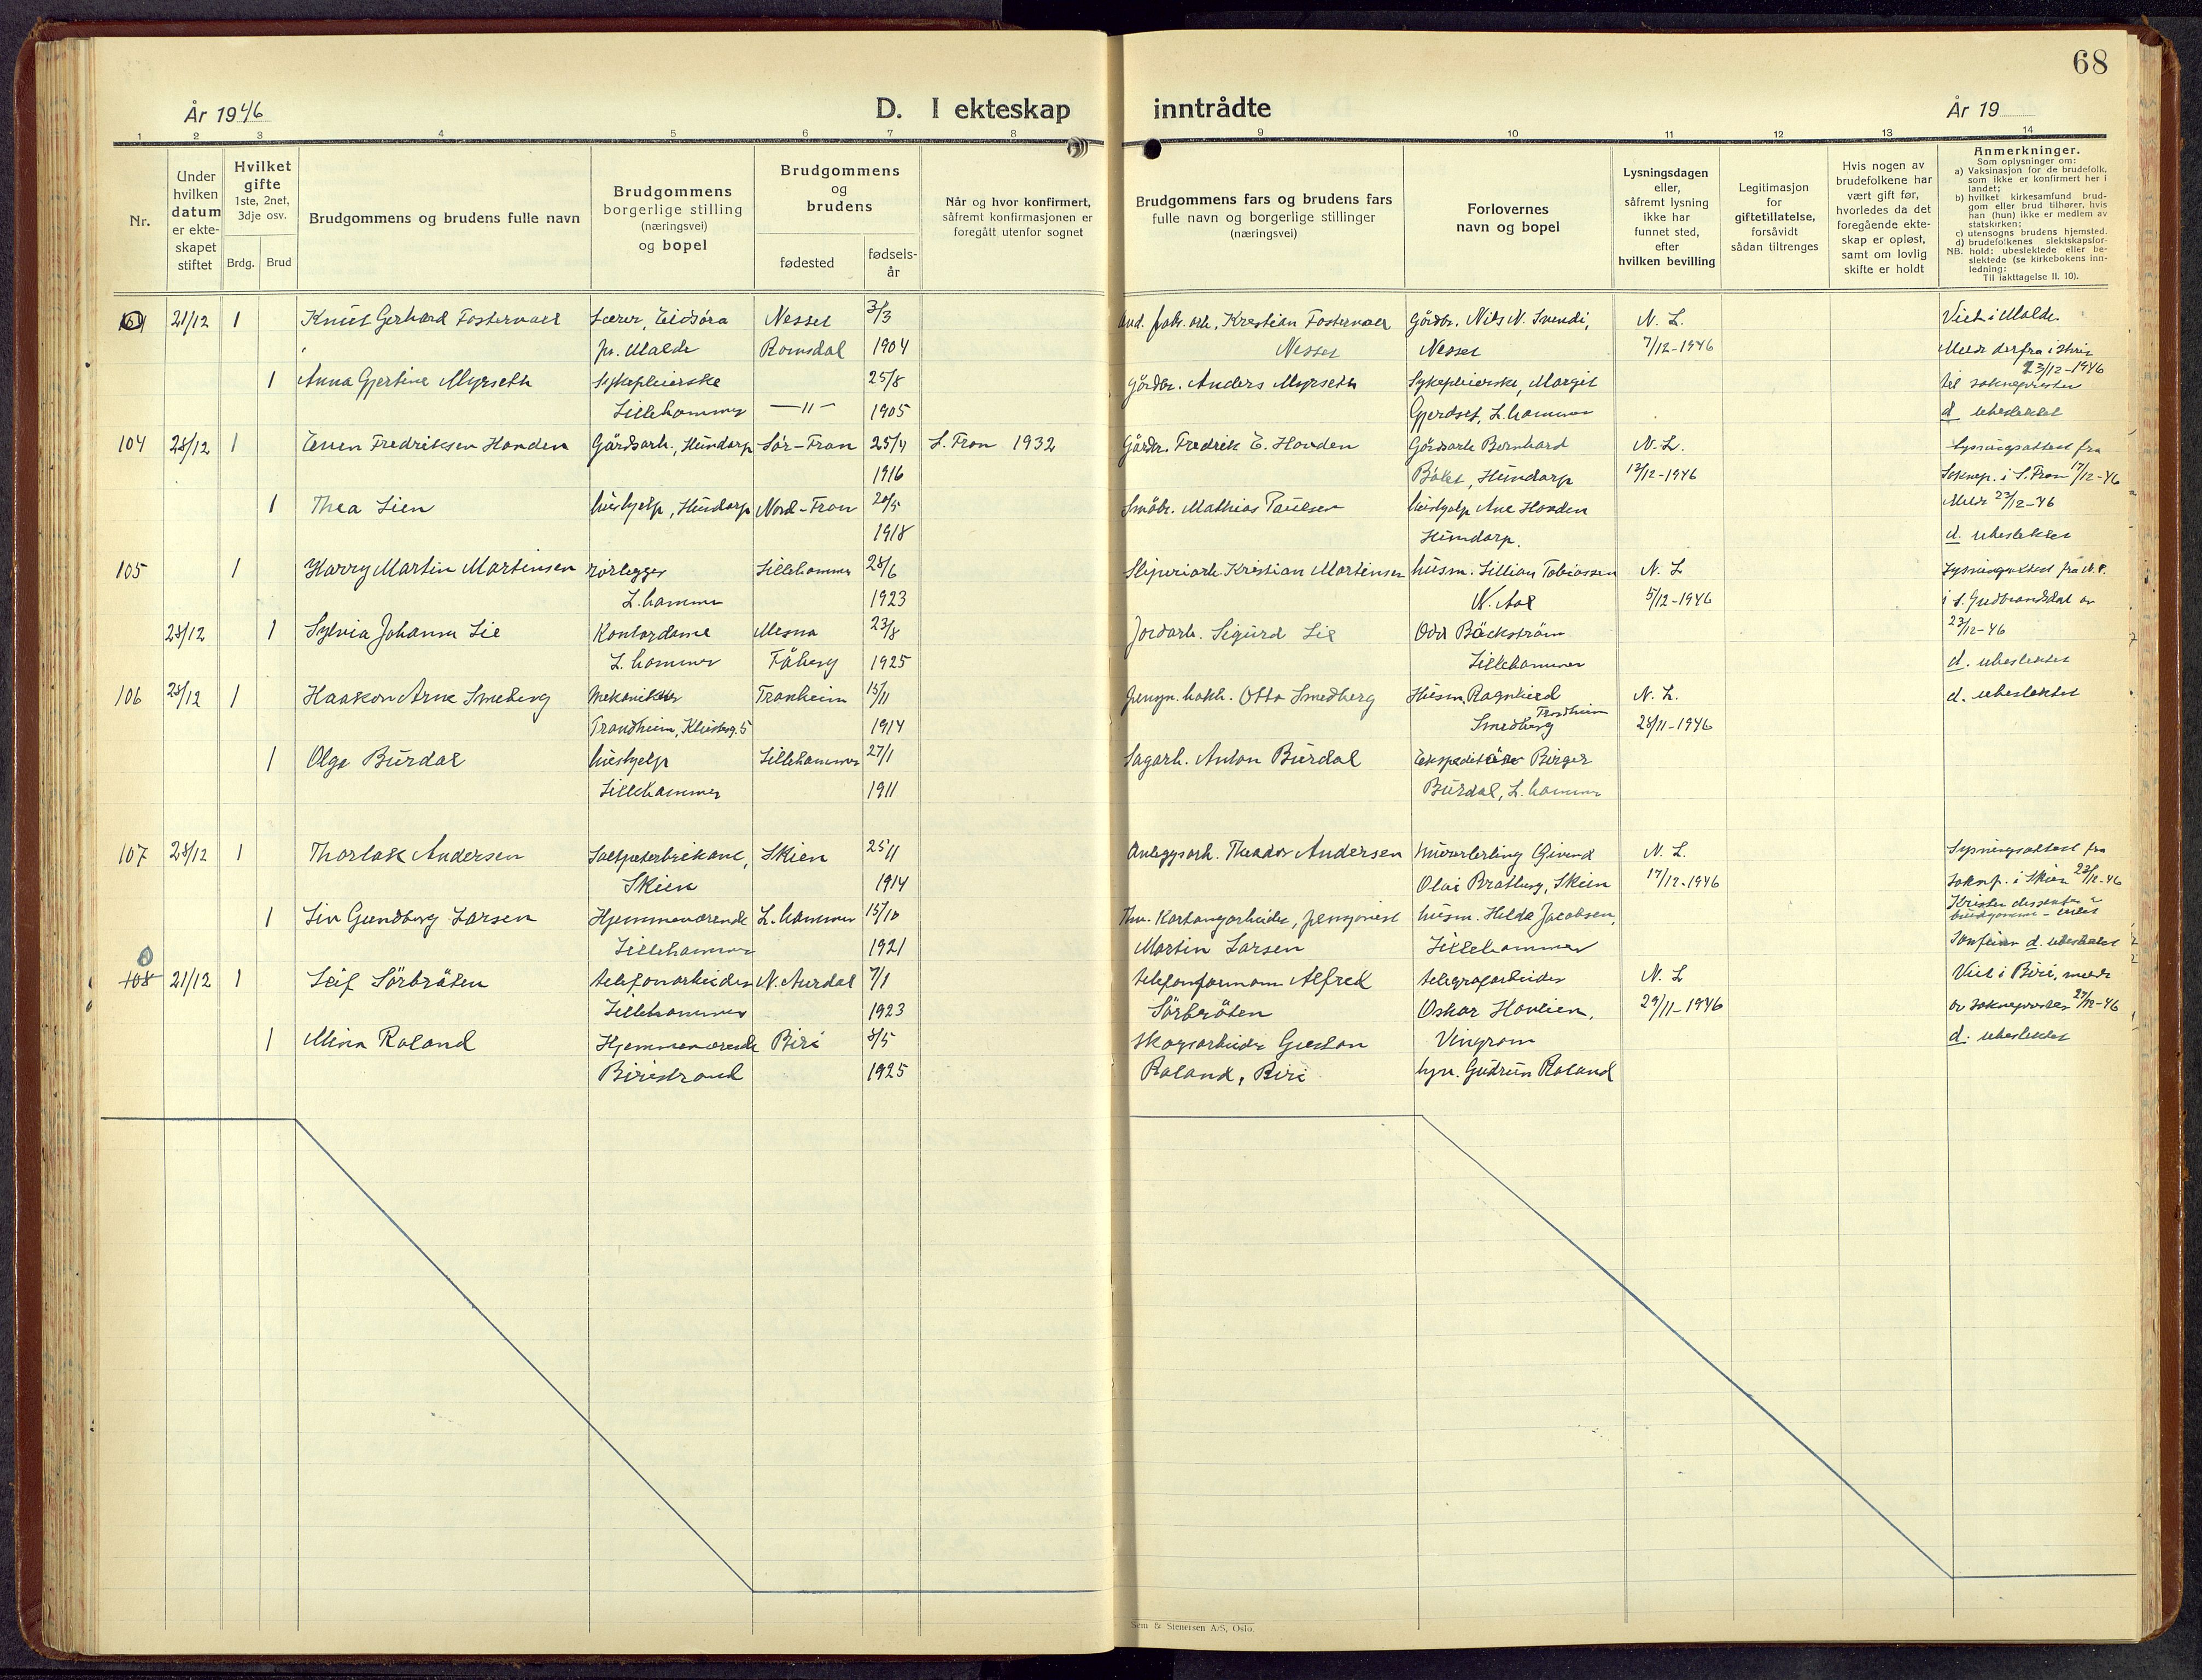 68
År 1946
D. I ekteskap inntrådte
År 19
1 2 3 4 5 6 7 8 9 10 11 12 13 14
Nr.
Under hvilken datum er ekteskapet stiftet
Hvilket gifte 1ste, 2net, 3dje osv.
Brdg. Brud
Brudgommens og brudens fulle navn
Brudgommens borgerlige stilling (næringsvei) og bopel
Brudgommens og brudens
fødested
fødsels-år
Når og hvor konfirmert, såfremt konfirmasjonen er foregått utenfor sognet
Brudgommens fars og brudens fars fulle navn og borgerlige stillinger (næringsvei)
Forlovernes navn og bopel
Lysningsdagen eller, såfremt lysning ikke har funnet sted, efter hvilken bevilling
Legitimasjon for giftetillatelse, forsåvidt sådan tiltrenges
Hvis nogen av brudefolkene har vært gift før, hvorledes da det foregående ekteskap er opløst, samt om lovlig skifte er holdt
Anmerkninger.
Som oplysninger om:
a) Vaksinasjon for de brudefolk, som ikke er konfirmert her i landet;
b) hvilket kirkesamfund brudgom eller brud tilhører, hvis han (hun) ikke er medlem av statskirken;
c) utensogns brudens hjemsted.
d) brudefolkenes slektskapsforhold: ubeslektede eller beslektede (se kirkebokens innledning:
NB. Til iakttagelse II. 10).
21/12 1 Knut Gerhard Fostervoll Lærer, Eidsøra Nesset 3/3 Kristian Fostervoll Gårdbr. Nils N. N. L. Viet i Molde.
pr. Molde Romsdal 1904 Nesset Nesset 7/12-1946
1 Anna Gjertine Myrseth Sykepleierske 25/8 Gårdbr. Anders Myrseth Sykepleierske, Margit 23/12-1946
Lillehammer —"— 1905 Gjerdset, L.hammer d. ubeslektet
104 28/12 1 Even Fredriksen Hovden Gårdsarb., Hundorp Sör-Fron 25/4 S. Fron 1932 Gårdbr. Fredrik E. Hovden Gårdsarb. Bernhard N. L. Lysningsattest fra
1916 Hundorp 12/12-1946 Soknep. i S. Fron 17/12-46
1 Thea Lien Hushjelp, Hundorp Nord-Fron 20/5 Småbr. Mathias Paulsen Hushjelp Ane Hovden 23/12-46
1918 Hundorp. d. ubeslektet
105 1 Harry Martin Martinsen rørlegger Lillehammer 28/6 Sliperiarb. Kristian Martinsen husm. Lillian Tobiassen N. L. Lysningsattest fra
L.hammer 1923 5/12-1946 i S. Gudbrandsdal av
28/12 1 Sylvia Johanna Lie Kontordame Mesna 23/8 Jordarb. Sigurd Lie Odd Bäckström 23/12-46
L.hammer Fåberg 1925 Lillehammer d. ubeslektet
106 28/12 1 Haakon Arne Smedberg Mekaniker Tronheim 15/11 Otto Smedberg Husm. Ragnhild N. L. d. ubeslektet
Trondheim 1914 Smedberg Trondheim 28/11-1946
1 Olga Burdal hushjelp Lillehammer 27/1 Sagarb. Anton Burdal Ekspeditör Birger
Lillehammer 1911 Burdal, L.hammer
107 28/12 1 Thorlak Andersen Skien 25/11 Anleggsarb. Theodor Andersen N. L. Lysningsattest fra
Skien 1914 Olai Bratberg, Skien 17/12-1946 Soknp. i Skien
1 Liv Gundborg Larsen Hjemmeværende L.hammer 15/10 husm. Helda Jacobsen,
Lillehammer 1921 Martin Larsen Lillehammer d. ubeslektet
108 21/12 1 Leif Sörbråten telefonarbeider N. Aurdal 7/1 telefonformann Alfred telegrafarbeider N. L. Viet i Biri, meldt
Lillehammer 1923 Sörbråten Oskar Hovlien, 29/11-1946 av soknepresten 27/12-46
1 Mina Roland Hjemmeværende Biri 3/5 Skogsarbeider Gustav Vingrom d. ubeslektet
Biristrand 1925 Roland, Biri Gudrun Roland
Sem & Stenersen A/S, Oslo.